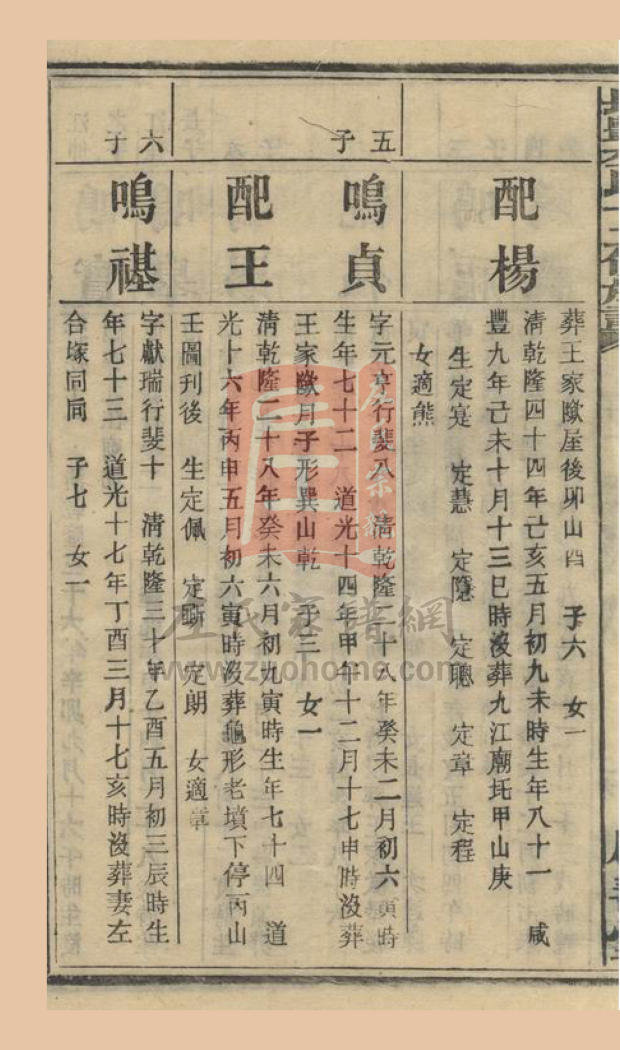 葬王家歐屋後卯山酉 子六 女一
配楊
清乾隆四十四年己亥五月初九未時生年八十一 咸
豐九年己未十月十三巳時沒葬九江廟圫甲山庚
生定寔 定慧 定隱 定聰 定章 定程
女適熊
五子
鳴貞
字元亨行斐八 清乾隆二十八年癸未二月初六寅時
生年七十二 道光十四年甲午十二月十七申時沒葬
王家歐月子形巽山乾 子三 女一
配王
清乾隆二十八年癸未六月初九寅時生年七十四 道
光十六年丙申五月初六寅時沒葬龜形老墳下停丙山
壬圖刋後 生定佩 定 定朗 女適章
六子
鳴禥
字獻瑞行斐十 清乾隆三十年乙酉五月初三辰時生
年七十三 道光十七年丁酉三月十七亥時沒葬妻左
合塚同向 子七 女一
左氏家譜網
www.zuohome.com